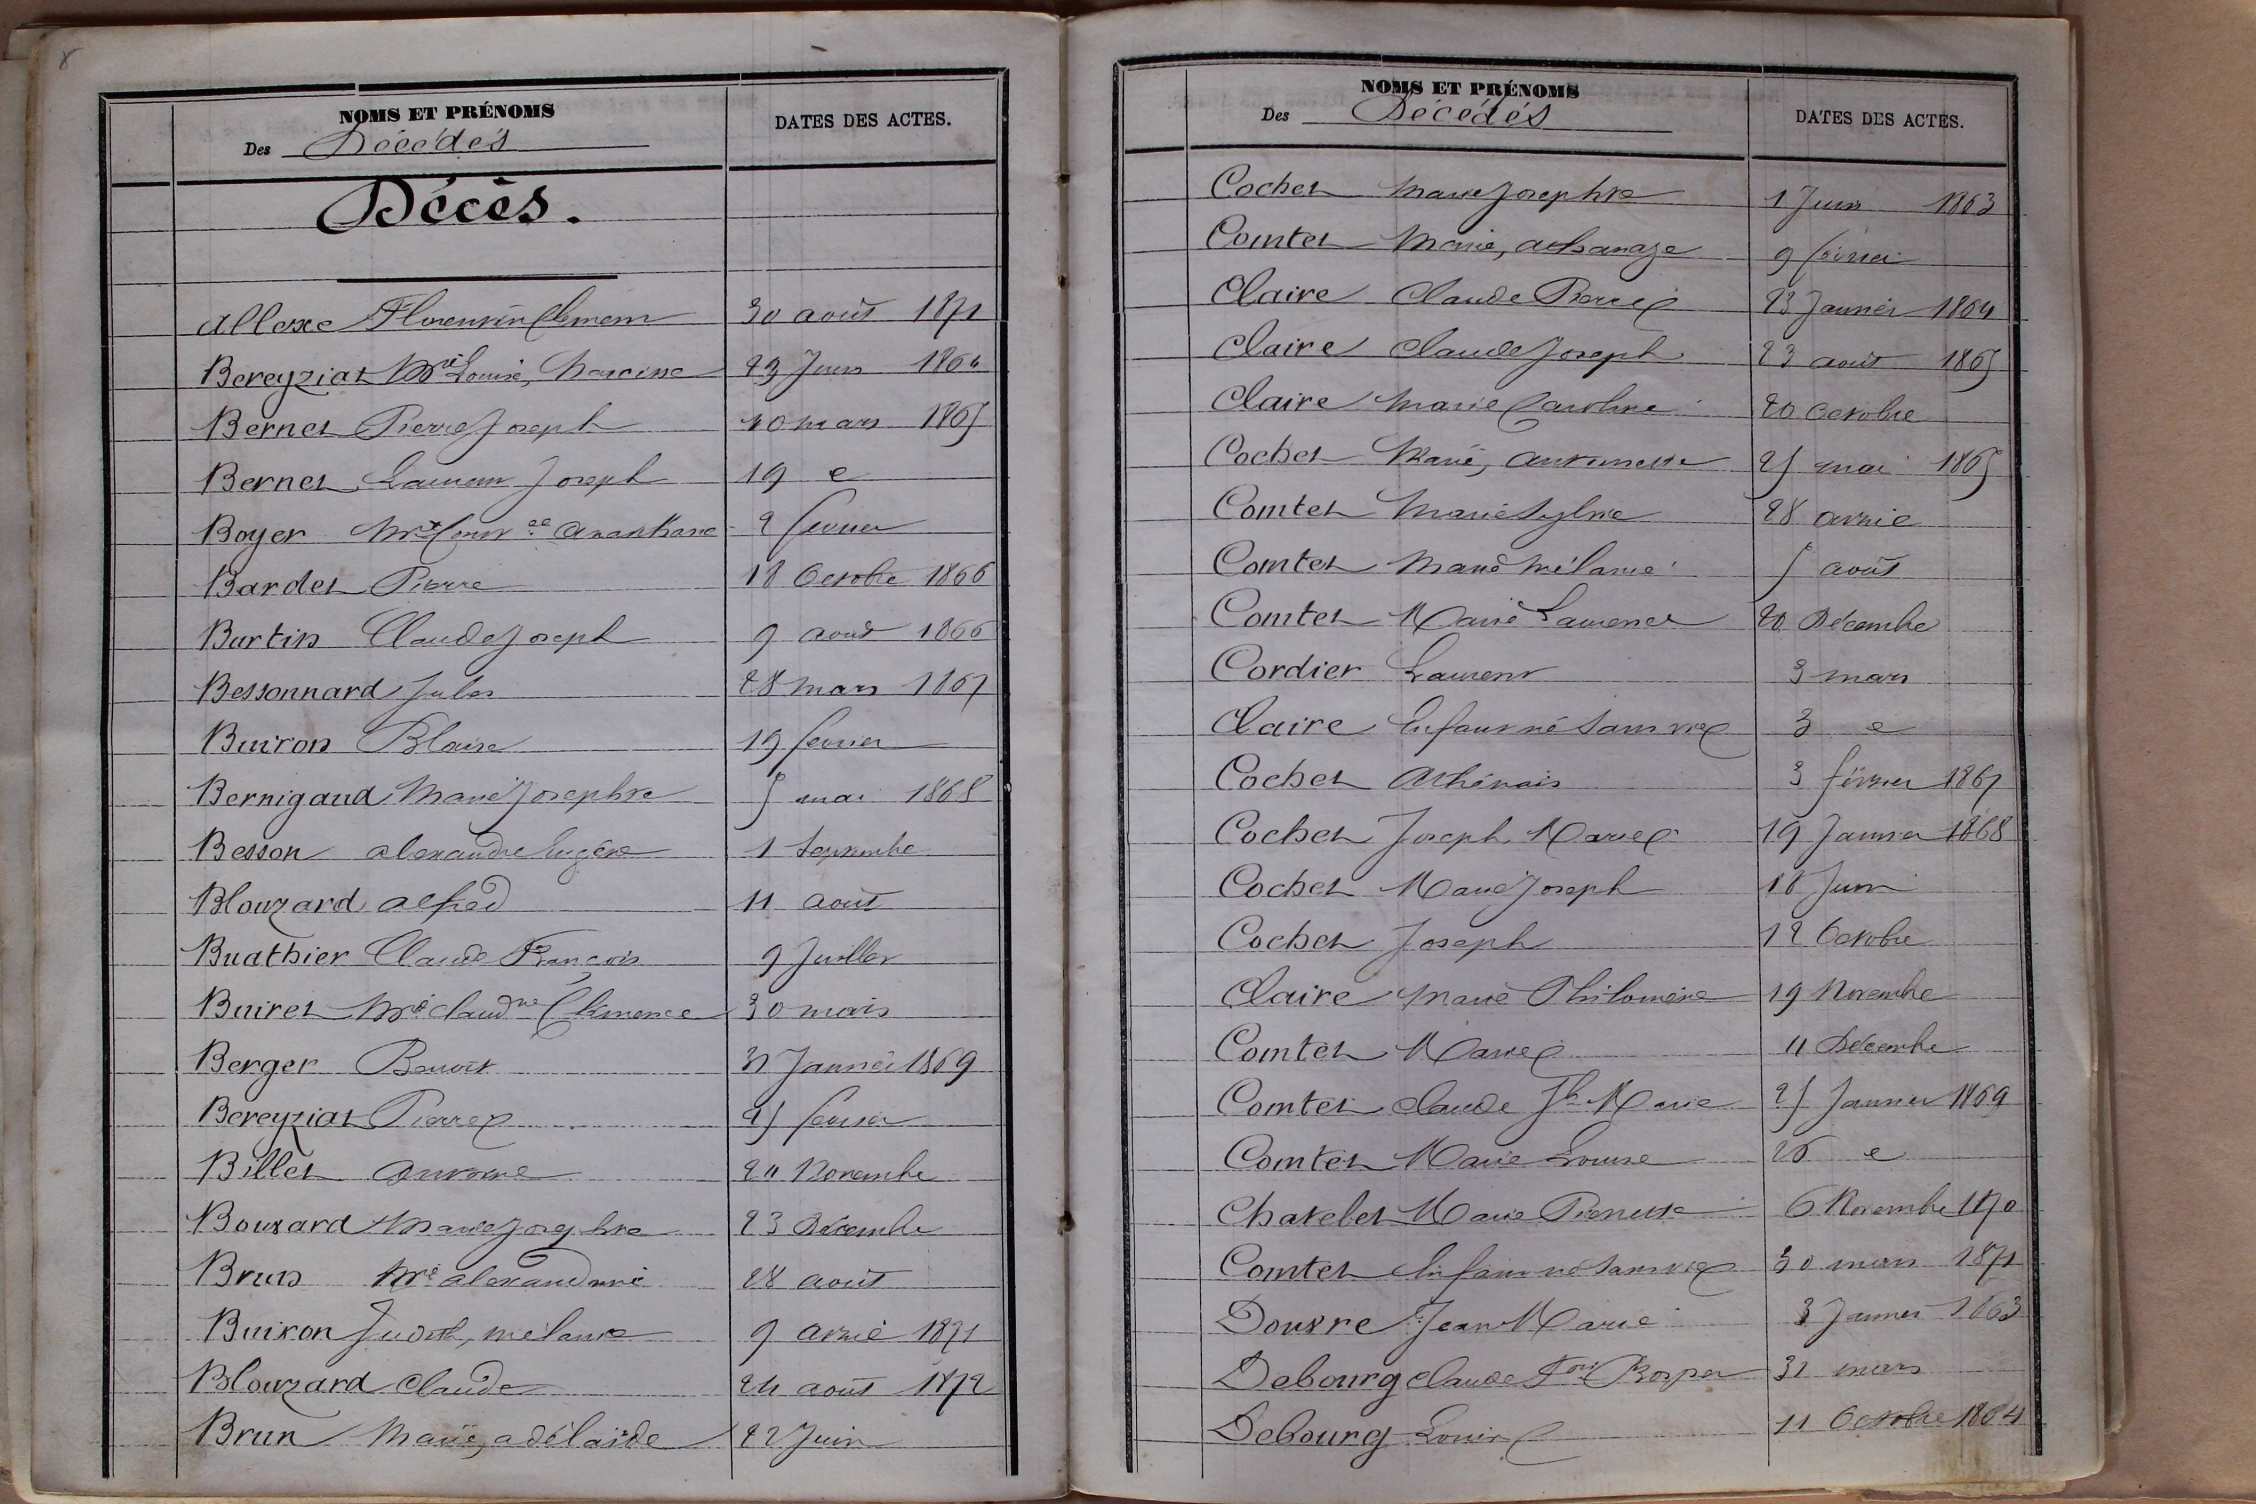 8
NOMS ET PRÉNOMS
DATES DES ACTES.
Des Décédés
Décès.
Allexe Florentin Clément 30 août 1871
Bereyziat Mie Louise, Narcisse 23 Juin 1864
Bernet Pierre Joseph 10 mars 1865
Bernet Laurent Joseph 19 e
Boyer Mie Anasthasie 2 février
Bardet Pierre 18 Octobre 1866
Burtin Claude Joseph 9 août 1866
Bessonnard Jules 28 mars 1867
Buiron Blaise 19 février
Bernigaud Marie Josephte 5 mai 1868
Besson alexandre Eugène 1 Septembre
Blouzard alfred 11 août
Buathier Claude François 9 Juillet
Buiret Mie Claudne Clémence 30 mars
Berger Benoit 31 Janvier 1869
Bereyziat Pierre 25 février
Billet Antoine 24 Novembre
Bouzard Marie Josephte 23 Décembre
Brun Mie alexandrine 28 août
Buiron Judith, mélanie 9 avril 1871
Blouzard Claude 24 août 1872
Brun Marie, adélaïde 22 Juin
NOMS ET PRÉNOMS
Des Décédés
DATES DES ACTES.
Cochet Marie Josephte 1 Juin 1863
Comtet Marie, athanaze 9 février
Claire Claude Pierre 23 Janvier 1864
Claire Claude Joseph 23 août 1865
Claire Marie Caroline 20 Octobre
Cochet Marie, Antoinette 25 mai 1865
Comtet Marie Sylvie 28 avril
Comtet Marie Mélanie 5 août
Comtet Marie Laurence 20 Décembre
Cordier Laurent 3 mars
Claire Enfant né sans vie 3 e
Cochet Athénais 3 février 1867
Cochet Joseph Marie 19 Janvier 1868
Cochet Marie Joseph 18 Juin
Cochet Joseph 12 Octobre
Claire Marie Philomène 19 Novembre
Comtet Marie 11 Décembre
Comtet Claude Jh Marie 25 Janvier 1869
Comtet Marie Louise 26 e
Chatelet Marie Pierrette 6 Novembre 1870
Comtet Enfant né sans vie 30 mars 1871
Douvre Jean Marie 3 Janvier 1863
Debourg Claude Fois Prosper 31 mars
Debourg Louis 11 Octobre 1864